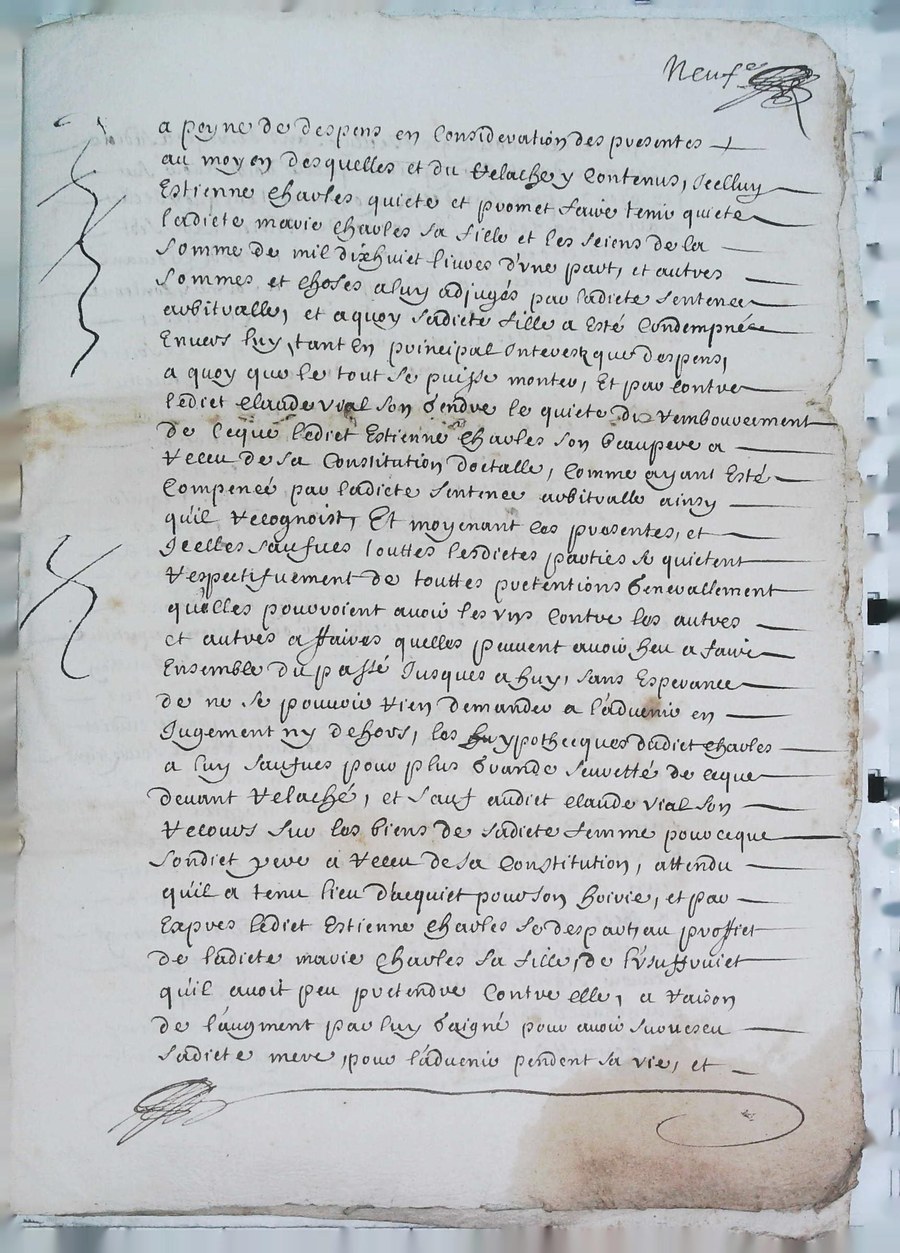 Neuf.e
a peyne de despens en consideration des presentes
au moyen desquelles et du relache y contenus, Icelluy
Estienne Charles quicte et promet faire tenir quicte
ladicte marie Charles sa fille et les seiens de la
somme de mil dixhuict livres d'vne part, et autres
sommes et choses a luy adjugés par ladicte sentence
arbitralle, et a quoy sadicte fille a esté Condempnée
Envers luy, tant En principal Interestz que despens,
a quoy que le tout se puisse monter, Et par contre
ledict Claude vial son gendre le quicte du rembourcement
de ceque ledict Estienne Charles son beaupere a
receu de sa Constitution doctalle, Comme ayant Esté
Compencé par ladicte sentence arbitralle ainsy
qu'il recognoist, Et moyenant les presentes, et
Icelles saufues touttes lesdictes parties se quictent
respectifuement de touttes pretentions generallement
quelles pourroient avoir les vns contre les autres
et autres affaires quelles peuvent avoir heu a faire
Ensemble du passé Jusques a huy, sans Esperance
de ne se pouvoir rien demander a l'advenir en
Jugement ny dehors, les hypothecques dudict Charles
a luy saufues pour plus grande seuretté de ceque
devant relaché, et sauf audict Claude vial son
recours sur les biens de sadicte femme pour ceque
sondict pere a receu de sa Constitution, attendu
qu'il a tenu lieu d'acquict pour son hoirie, et par
Expres ledict Estienne Charles se despart, au proffict
de ladicte marie Charles sa fille, de l'vsuffruict
qu'il avoit peu pretendre Contre elle, a raison
de l'augment par luy gaigné pour avoir survescu
sadicte mere, pour l'advenir pendent sa vie, et